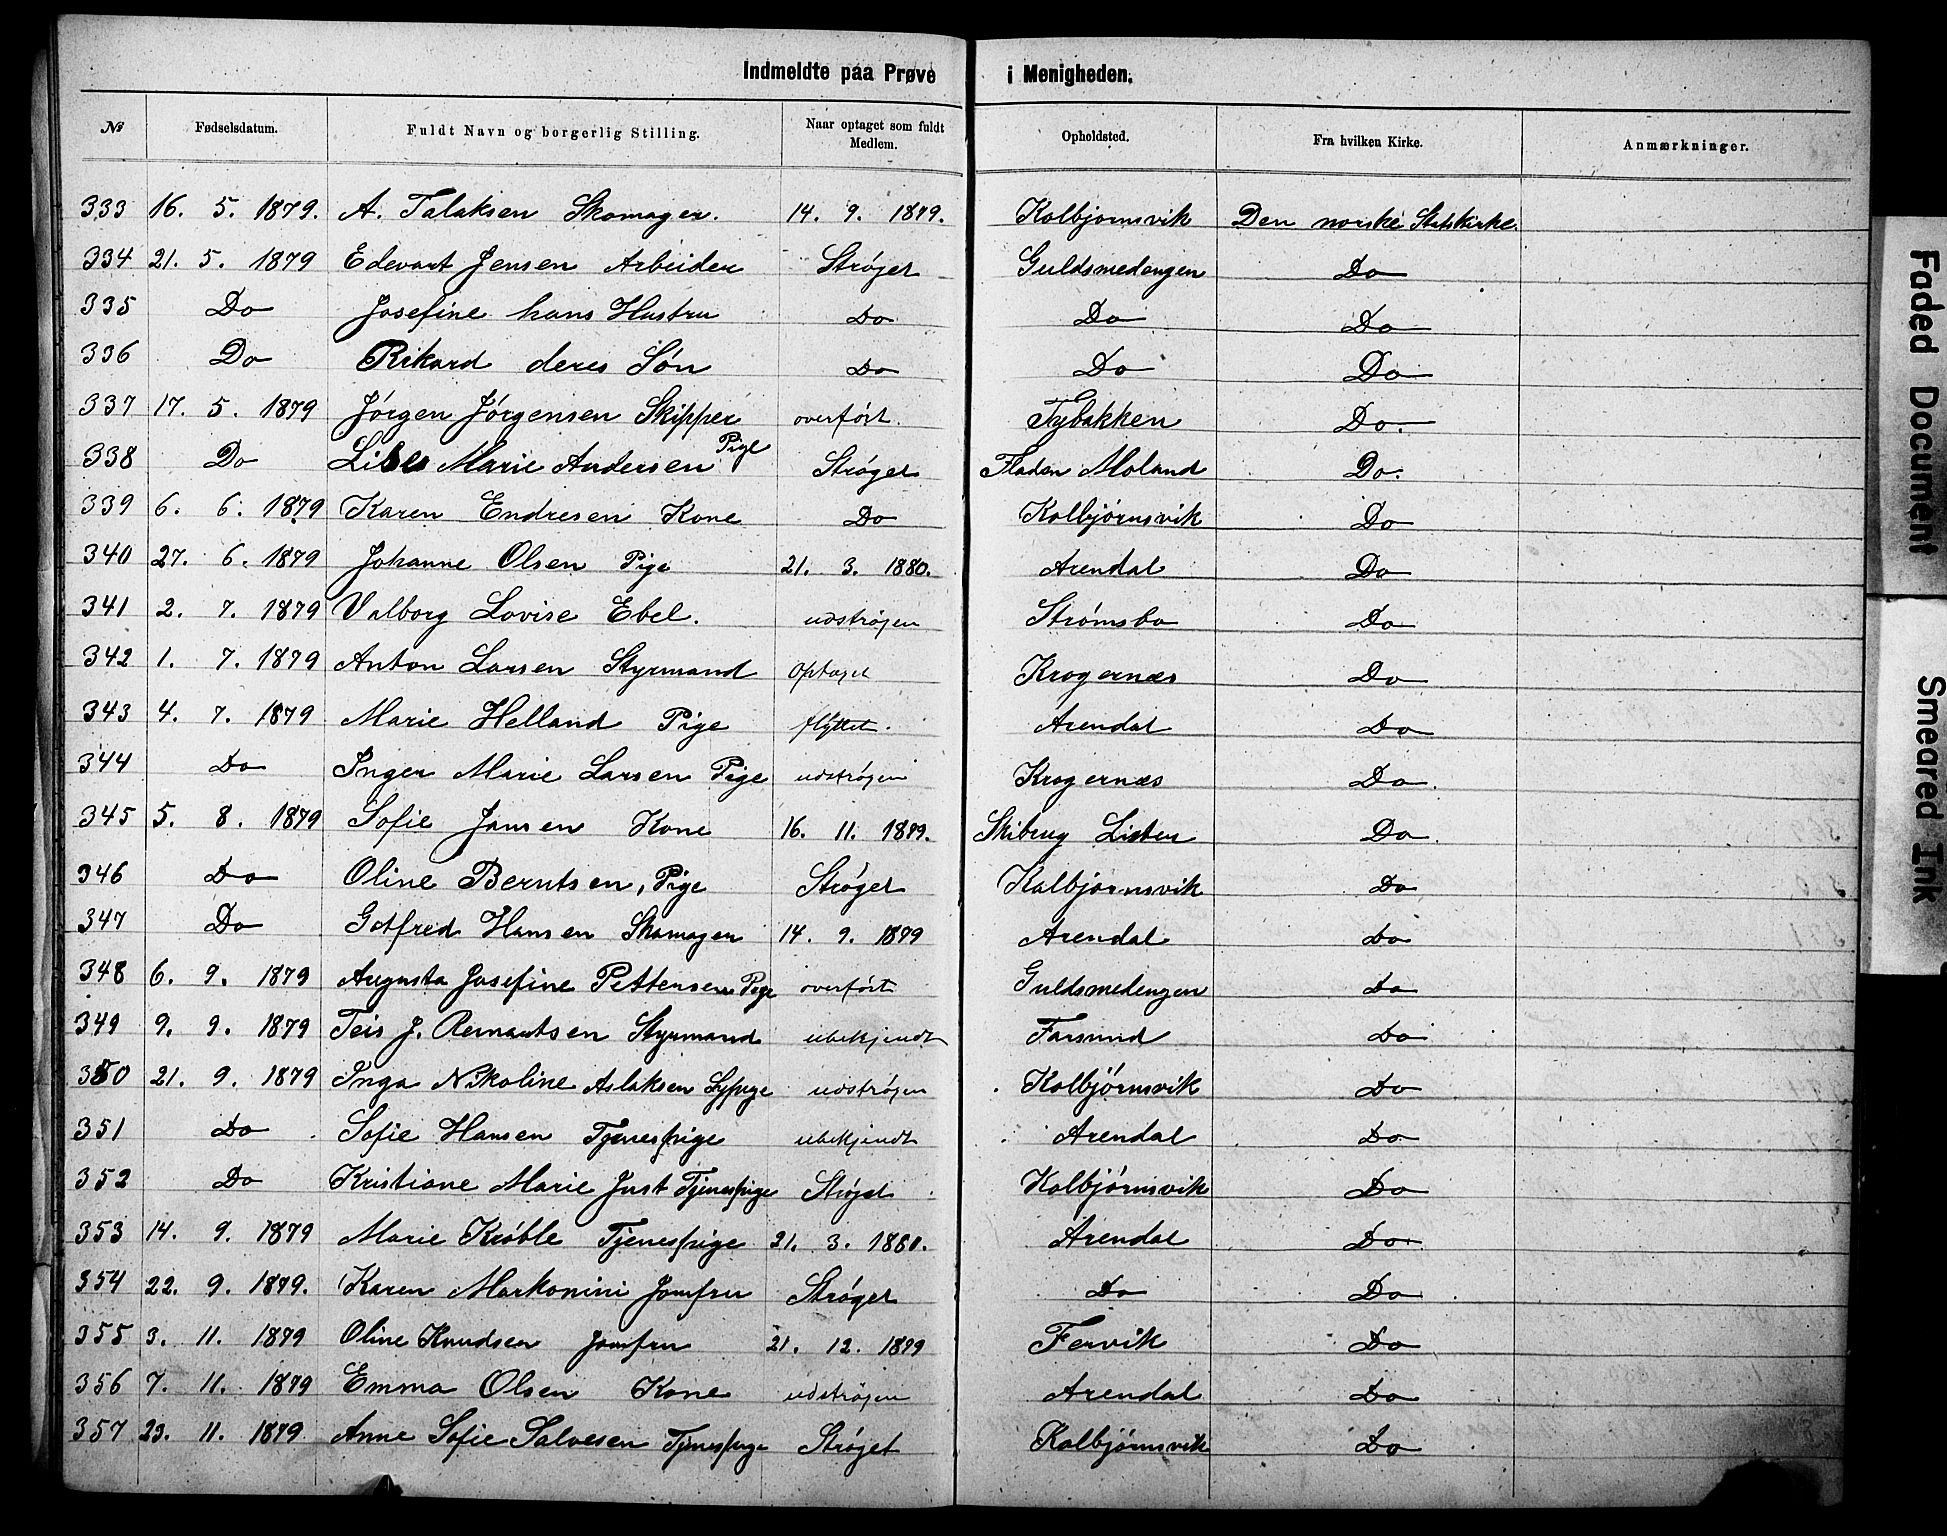 Indmeldte paa Prøve i Menigheden.
№ Fødselsdatum. Fuldt Navn og borgerlig Stilling. Naar optaget som fuldt Medlem. Opholdsted. Fra hvilken Kirke. Anmærkninger.
333 16. 5. 1879. A. Talaksen Skomager. 14. 9. 1879. Kolbjornsvik Den norske Statskirke.
334 21. 5. 1879 Edevart Jensen Arbeider Strøget Guldsmedengen Do
335 Do Josefine hans Hustru Do Do Do
336 Do Rikard deres Søn Do Do Do
337 17. 5. 1879 Jørgen Jørgensen Skipper overført. Tybakken Do.
338 Do Marie Andersen Pige Strøget Fladen Moland Do.
339 6. 6. 1879 Karen Endresen Kone Do Kolbjørnsvik Do
340 27. 6. 1879 Johanne Olsen Pige 21. 3. 1880. Arendal Do
341 2. 7. 1879 Valborg Lovise Ebel. udstrøgen Strømsbo Do
342 1. 7. 1879 Anton Larsen Styrmand Optaget Krogernæs Do
343 4. 7. 1879 Marie Helland Pige flyttet. Arendal Do
344 Do Inger Marie Larsen Pige udstrøgen Krogernæs Do.
345 5. 8. 1879 Sofie Jansen Kone 16. 11. 1879. Lister Do.
346 Do Oline Berntsen, Pige Strøget Kolbjørnsvik Do
347 Do Gotfred Hansen Skomager 14. 9. 1879 Arendal Do
348 6. 9. 1879 Augusta Josefine Pettersen Pige overført Guldsmedengen Do
349 9. 9. 1879 Teis J. Styrmand ubekjendt Farsund Do
350 21. 9. 1879 Inga Nikoline Aslaksen udstrøgen Kolbjørnsvik Do
351 Do Sofie Hansen Tjenespige ubekjendt Arendal Do
352 Do Kristiane Marie Just Tjenespige Strøget Kolbjørnsvik Do
353 14. 9. 1879 Marie Krøble Tjenespige 21. 3. 1880. Arendal Do
354 22. 9. 1879. Karen Markonini Jomfru Strøget Do Do
355 3. 11. 1879 Oline Knudsen Jomfru 21. 12. 1879 Fervik Do
356 7. 11. 1879 Emma Olsen Kone udstrøgen Arendal Do
357 23. 11. 1879 Anne Sofie Salvesen Tjenespige Strøget Kolbjørnsvik Do
Faded Document
Smeared Ink